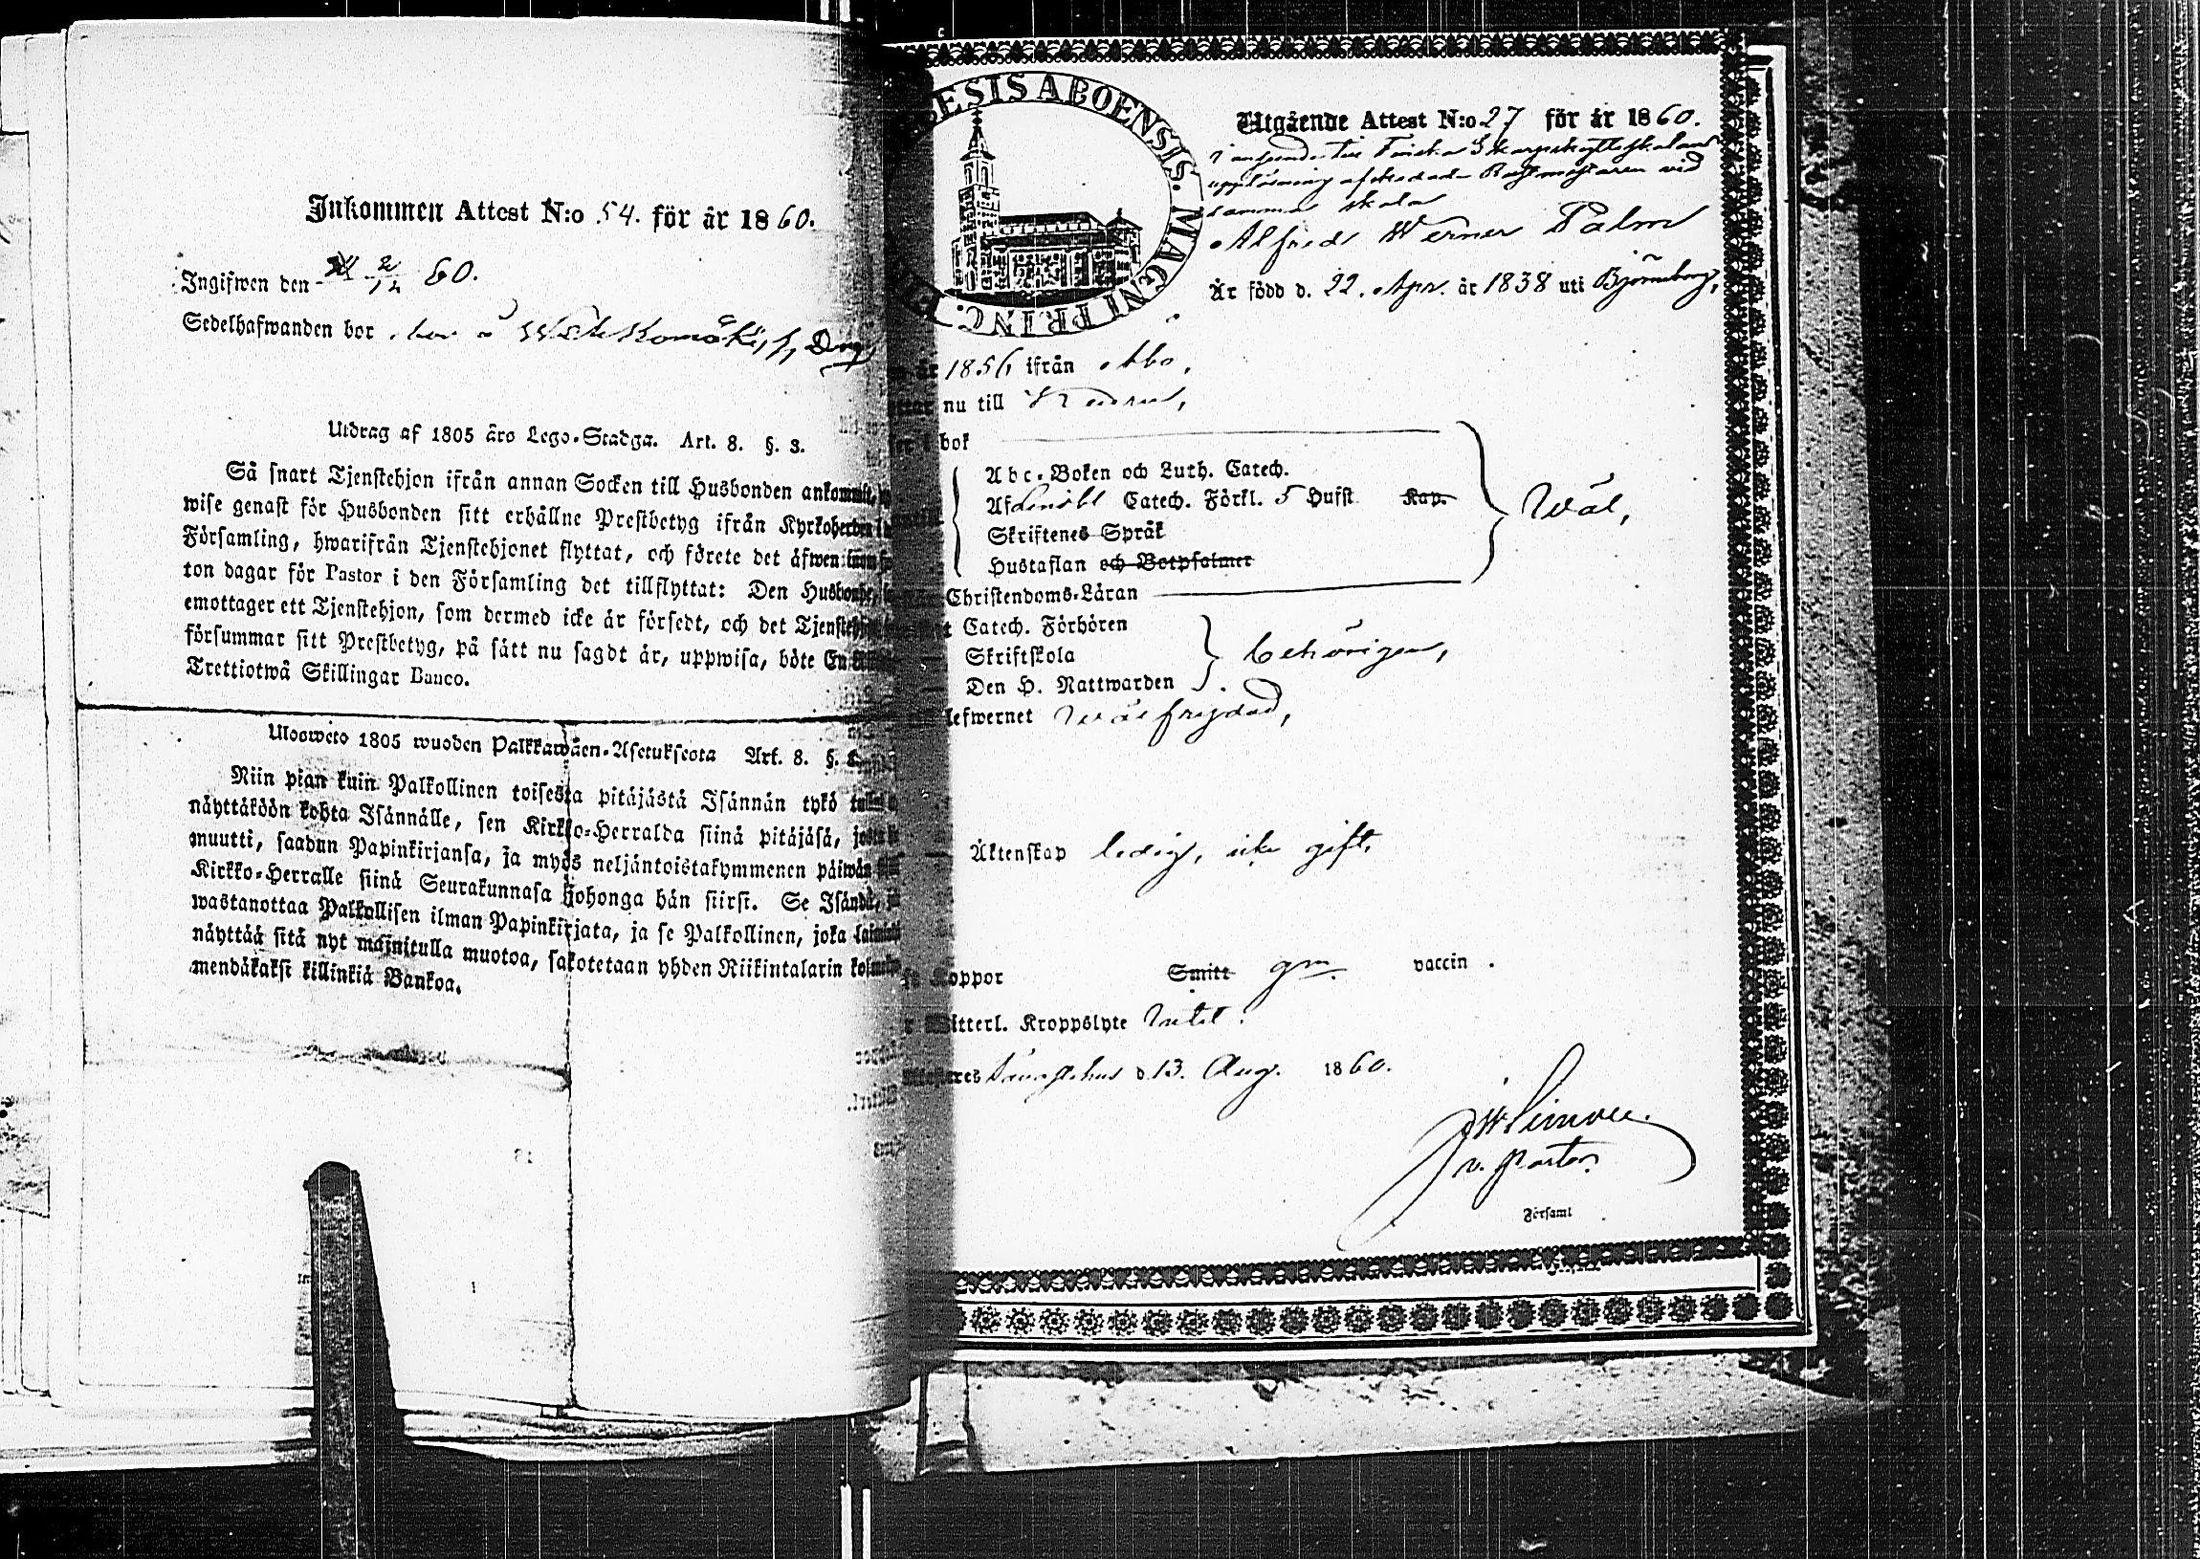 Inkommen Attest N:o 54. för år 1860.
Ingifwen den 2/12 60.
Sedelhafwanden bor
Utdrag af 1805 års Lego-Stadga. Art. 8. §. 3.
Så snart Tjenstehjon ifrån annan Socken till Husbonden ankommit,
wise genast för Husbonden sitt erhållne Prestbetyg ifrån Kyrkoherden i
Församling, hwarifrån Tjenstehjonet flyttat, och förete det äfwen inom
ton dagar för Pastor i den Församling det tillflyttat: Den Husbonde,
emottager ett Tjenstehjon, som dermed icke är försedt, och det Tjenstehjon
försummar sitt Prestbetyg, på sätt nu sagdt är, uppwisa, böte En
Trettiotwå Skillingar Banco.
Ulosweto 1805 wuoden Palkkawäen-Asetuksesta Art. 8. §.
Niin pian kuin Palkollinen toisesta pitäjästä Isännän tykö
näyttäköön kohta Isännälle, sen Kirkko-Herralda siinä pitäjäsä,
muutti, saadun Papinkirjansa, ja myös neljäntoistakymmenen päiwän
Kirkko-Herralle siinä Seurakunnasa johonga hän siirsi. Se Isändä,
wastanottaa Palkollisen ilman Papinkirjata, ja se Palkollinen, joka
näyttää sitä nyt mainitulla muotoa, sakotetaan yhden Riikintalarin
mendäkaksi killinkiä Bankoa.
ESIS ABOENSIS. MAGNI PRINC.
Utgående Attest N:o 27 för år 1860.
upplösning vid
samma skola
Alfred Werner Palm
Är född d. 22. Apr. år 1838 uti Björneborg,
år 1856 ifrån Åbo,
nu till
bok
Abc-Boken och Luth. Catech.
Af Catech. Förkl. 5 Hufst Kap.
Skriftenes Språk
Hustaflan och Botpsalmer
Wäl,
Christendoms-Läran
Catech. Förhören
Skriftskola
Den H. Nattwarden
behörigen,
lefwernet wälfrejdad,
Äktenskap ledig, icke gift.
Koppor Smitt gm. vaccin.
Witterl. Kroppslyte Intet.
Tavastehus d. 13. Aug. 1860.
v. Pastor.
Församl